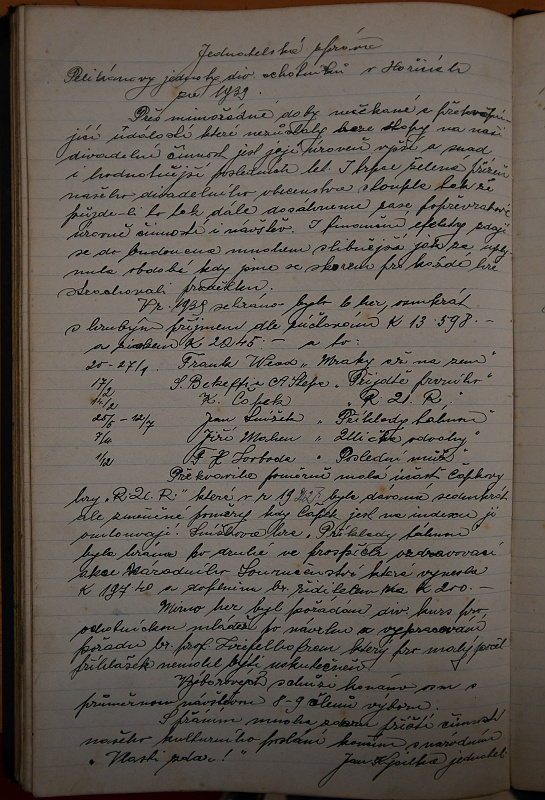 Jednatelská zpráva
Pelikánovy jednoty div. ochotníků v Hořicích
za 1939.
Přes mimořádné doby nečekané a
jící události které nezůstaly beze stopy na naší
divadelní činnost jest její úroveň výše a snad
i hodnotnější posledních let. I kruse
našeho divadelního obecenstva stoupla tak že
půjde-li to tak dále dosáhneme zase popřevratové
úrovně činnosti i návštěv. I finanční efekty zdají
se do budoucna mnohem slibnější jak za uply-
nulá období kdy jsme se skorem pro každé hře
strachovali
V r. 1939 sehráno bylo 6 her, osmkrát
s hrubým příjmem dle účtování K 13.598.-
a ziskem K 2845.- a to:
20-27/1 Frank Wead "Mraky na zem"
17/2 S. Bekeffi a A. Stella "Přijdte prvního"
14/2 K. Čapek "R. U. R."
25/5 - 12/7 Jan Snížek "Příklady táhnou"
9/4 Jiří Mahen "Ulička odvahy"
1/12 F. X. Svoboda "Poslední muž"
Překvapila poměrně malá účast Čapkovy
hry "R. U. R." která v r. 19 byla dávána
ale změněné poměry kdy Čapek jest na indexu ji
omlouvají. Snížkova hra Příklady táhnou
byla hrána po druhé ve prospěch ozdravovací
akce Národního Souručenství která vynesla
K 197.40 a doplněním br. ředitelem na K 200.-
Mimo her byl pořádán div. kurs pro
ochotnickou mládež po návrhu a vypracování
pořadu br. prof. který pro malý počet
přihlášek nemohl býti uskutečněn.
Výborových schůzí konáno osm s
průměrnou návštěvou 8-9 členů výboru.
S přáním mnoha zdaru příští činnosti
našeho kulturního poslání končím s národním
"Vlasti zdar!" Jan jednatel